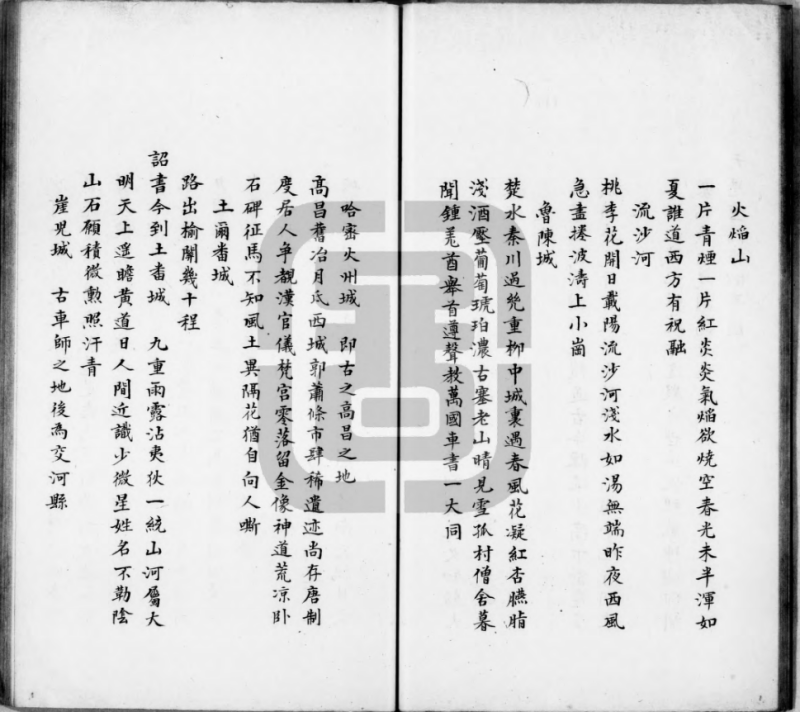 火焰山
一片青煙一片紅炎炎氣焰欲燒空春光未半渾如
夏誰道西方有祝融
流沙河
桃李花開日載陽流沙河淺水如湯無端昨夜西風
急盡捲波濤上小崗
魯陳城
楚水秦川過幾重柳中城裏遇春風花凝紅杏臙脂
淺酒壓葡萄琥珀濃古塞老山晴見雪孤村僧舍暮
聞鍾羌酋舉首遵聲教萬國車書一大同
哈密火州城 即古之高昌之地
高昌舊治月氐西城郭蕭條市肆稀遺迹尚存唐制
度居人爭覩漢官儀梵宫零落留金像神道荒凉卧
石碑征馬不知風土異隔花猶自向人嘶
土爾番城
路出榆關幾十程
詔書今到土番城 九重雨露沾夷狄一統山河屬大
明天上遥瞻黄道日人間近識少微星姓名不勒陰
山石願積微勲照汗青
崖兒城 古車師之地後為交河縣